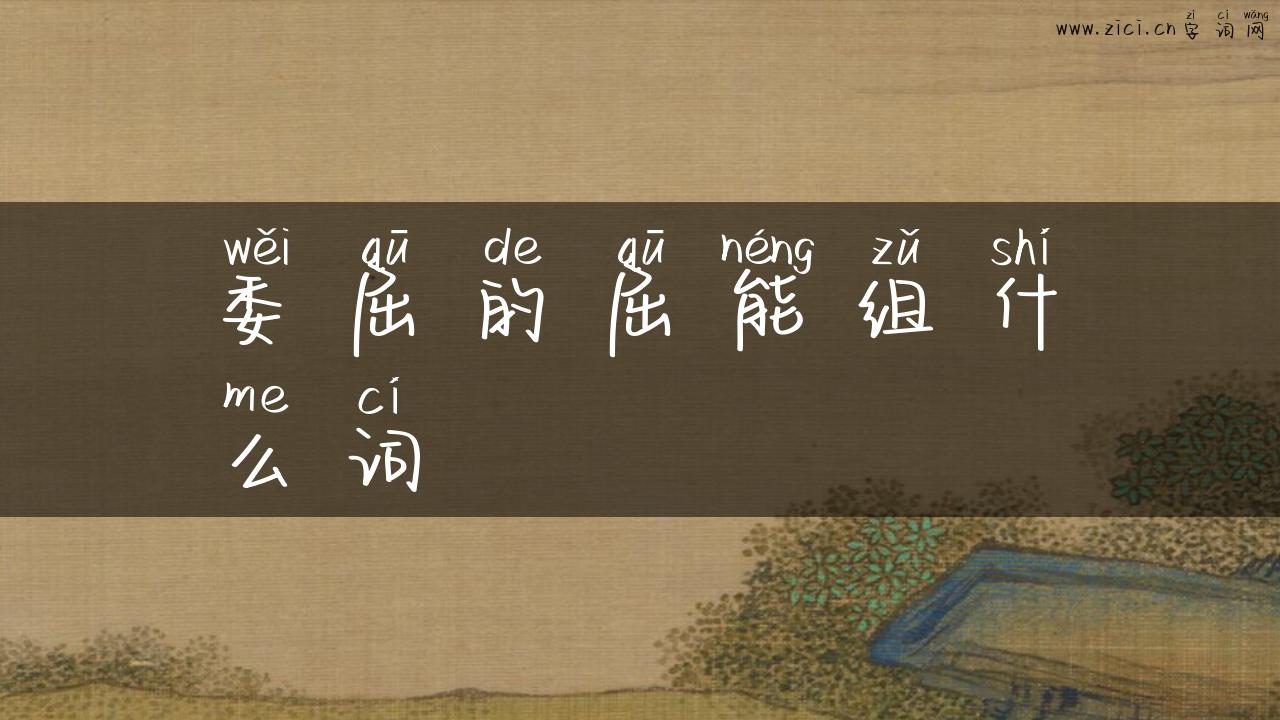 zì cí wǎng
www.zici.cn 字 词 网
wěi qū de qū néng zǔ shí
委 屈 的 屈 能 组 什
me cí
么 词